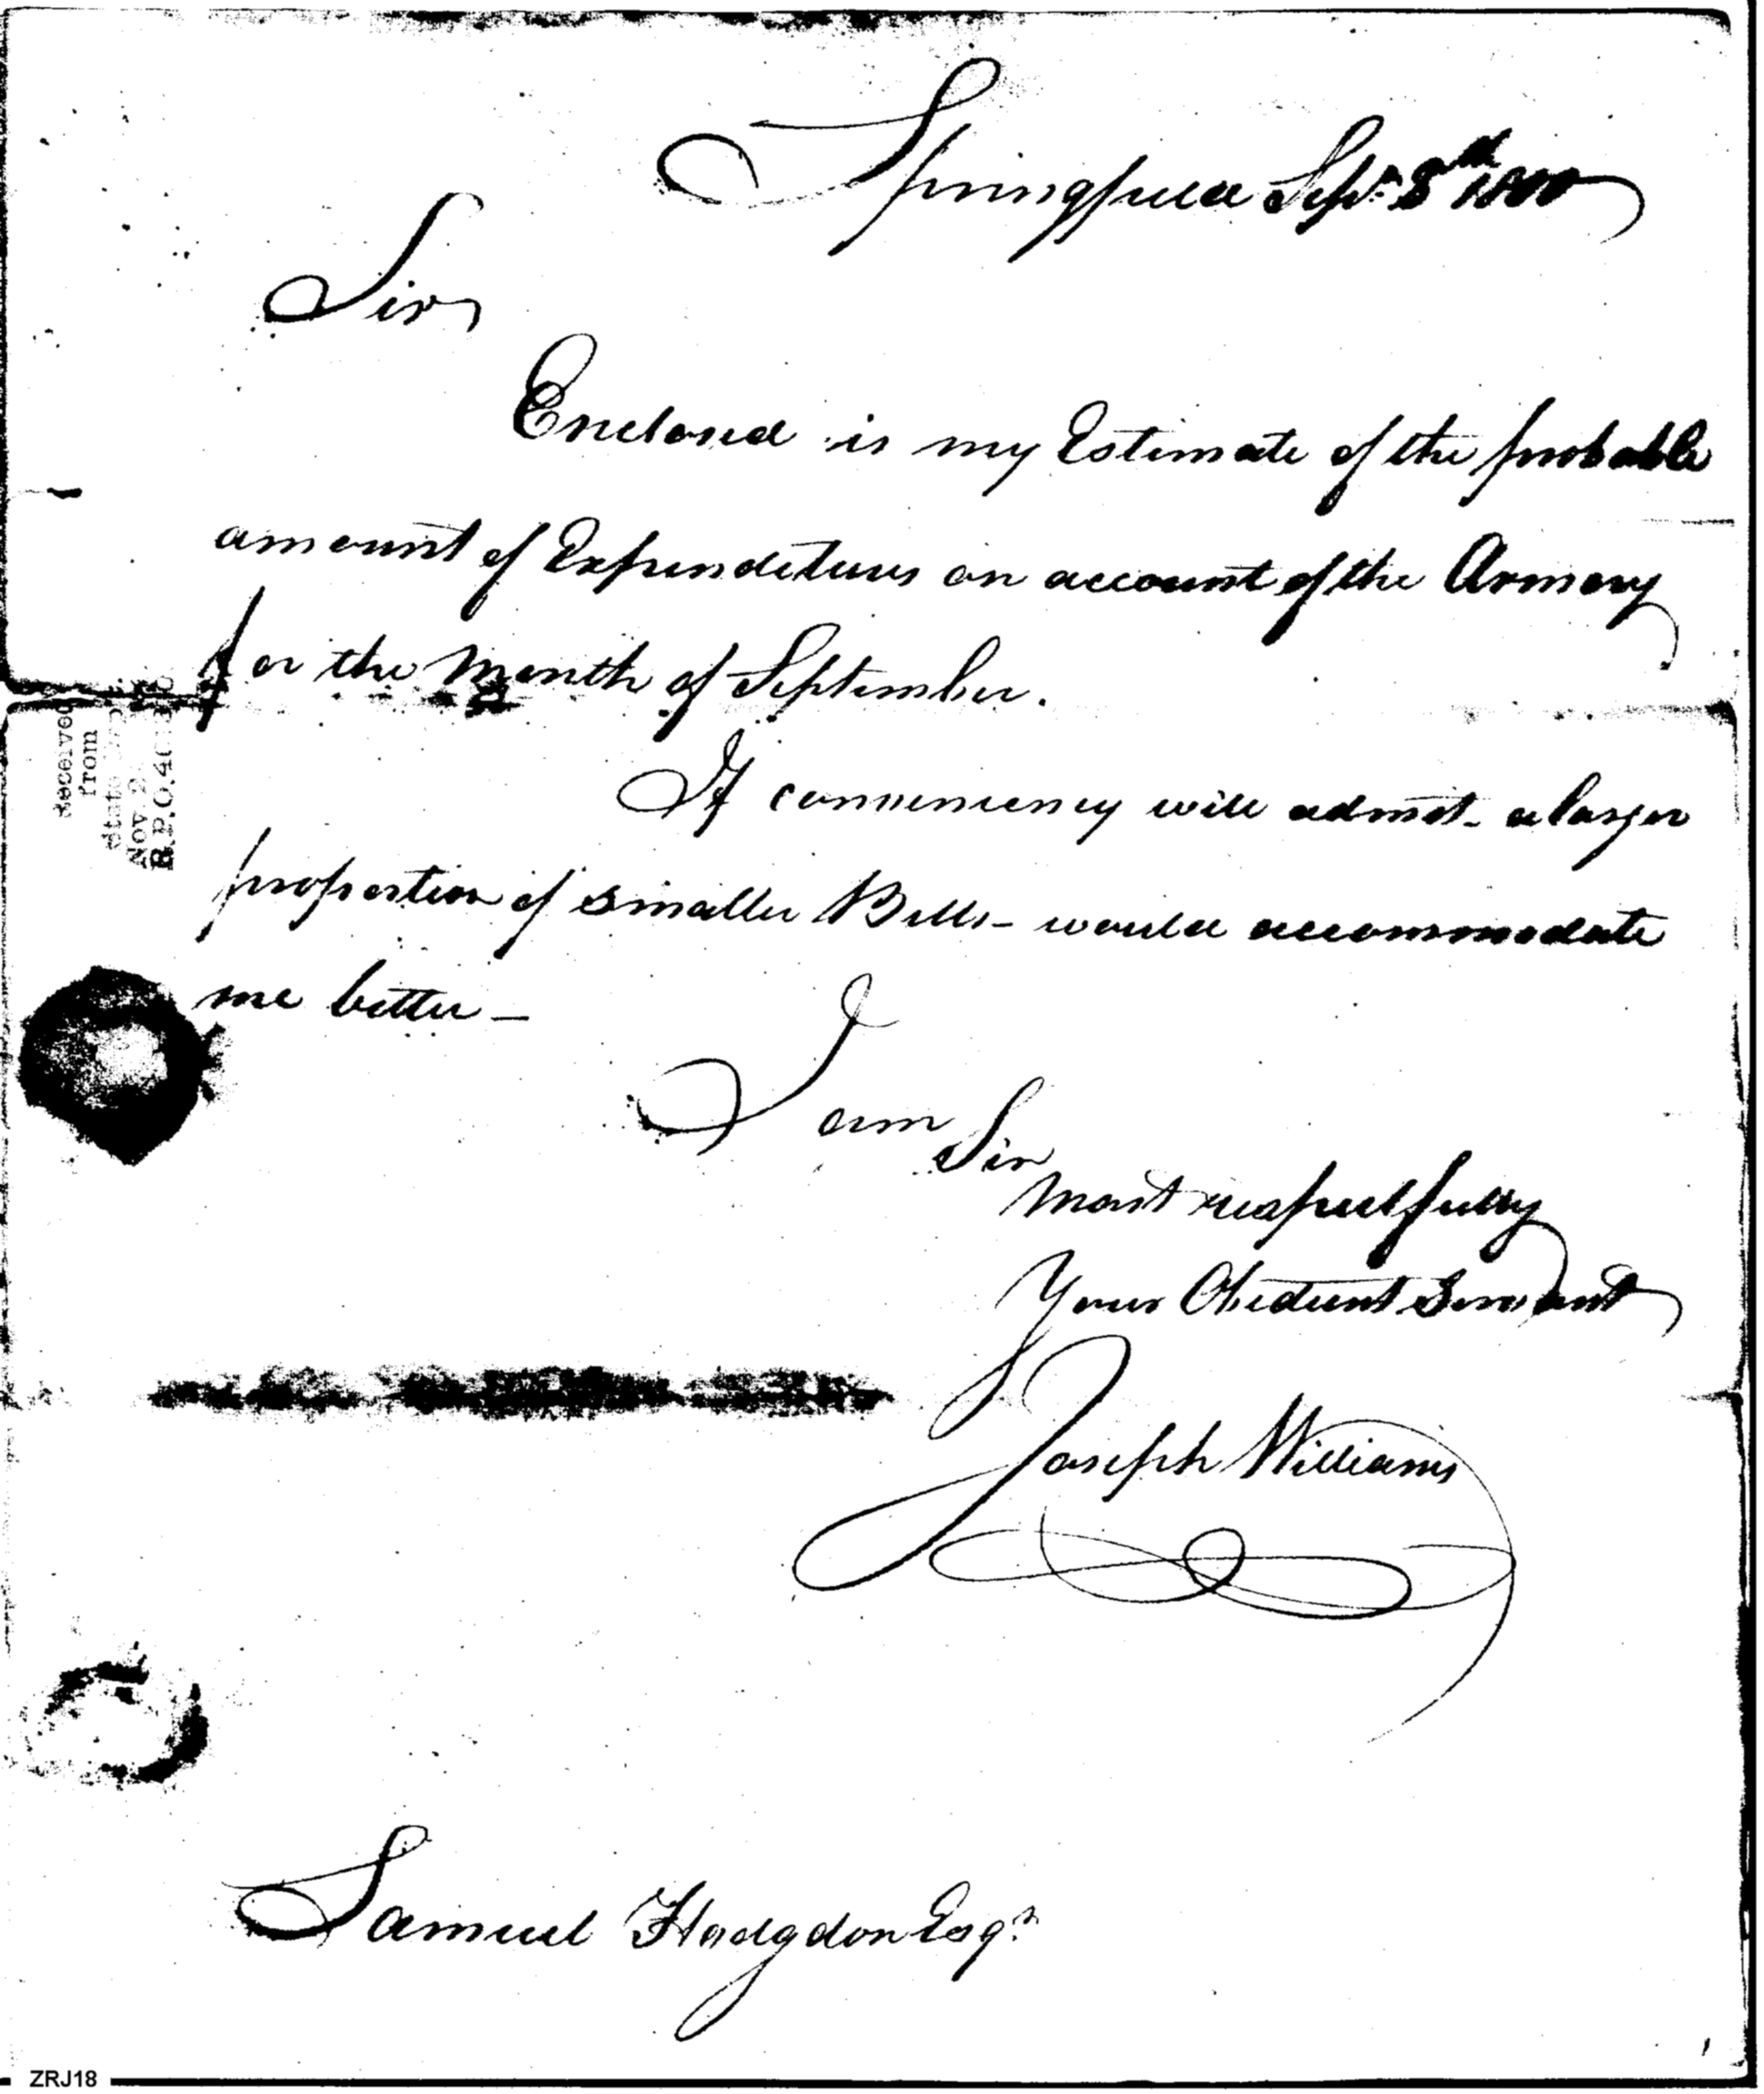 Springfield Sept. 1800
Sir
Enclosed is my Estimate of the probable
amount of Expenditures on account of the Armory
for the Month of September.
If conveniency will admit - a larger
proportion of smaller Bills - would accommodate
me better -
I am
Sir
Most respectfully
Your Obedient Servant
Joseph Williams
Samuel Hodgdon Esqr.
Received
from
State
Nov 2
R.P.O.40
ZRJ18